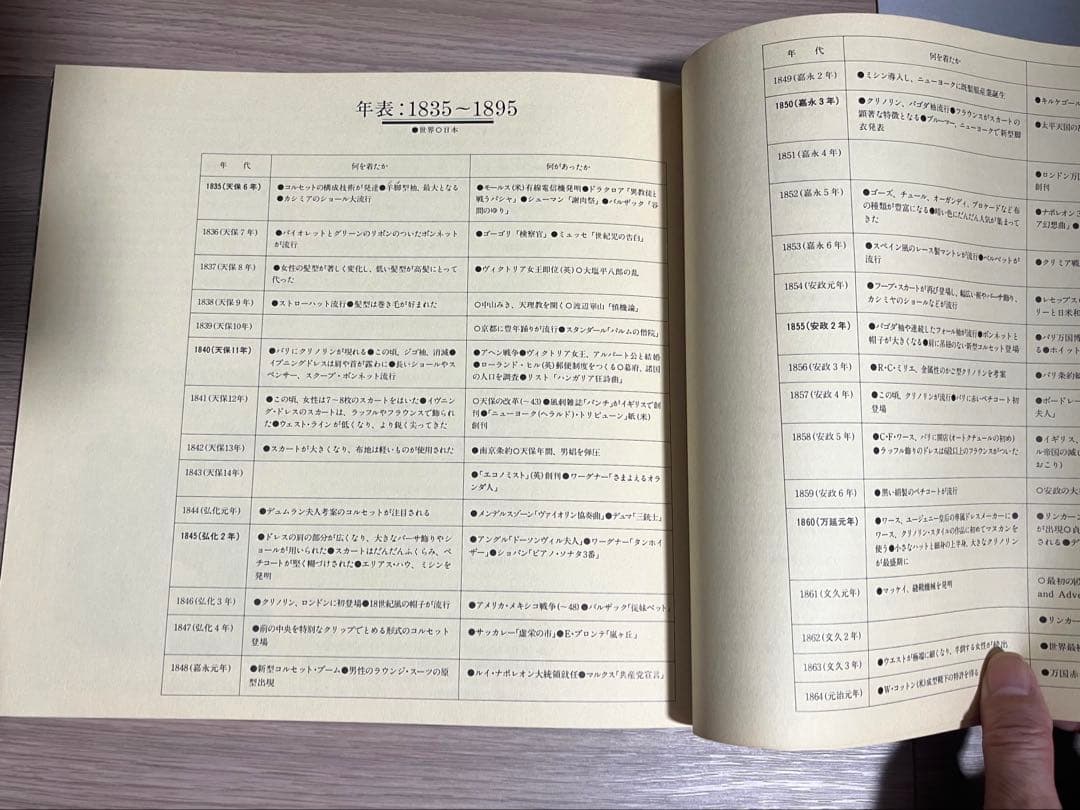 年表：1835〜1895
●世界○日本
年　代　何を着たか　何があったか
1835(天保6年)　●コルセットの構成技術が発達●羊脚型袖、最大となる　●モールス(米)有線電信機発明●ドラクロア「異教徒と
●カシミアのショール大流行　戦うパシャ」●シューマン「謝肉祭」●バルザック「谷
間のゆり」
1836(天保7年)　●バイオレットとグリーンのリボンのついたボンネット　●ゴーゴリ「検察官」●ミュッセ「世紀児の告白」
が流行
1837(天保8年)　●女性の髪型が著しく変化し、低い髪型が高髪にとって　●ヴィクトリア女王即位(英)○大塩平八郎の乱
代った
1838(天保9年)　●ストローハット流行●髪型は巻き毛が好まれた　○中山みき、天理教を開く○渡辺崋山「慎機論」
1839(天保10年)　○京都に豊年踊りが流行●スタンダール「パルムの僧院」
1840(天保11年)　●パリにクリノリンが現れる●この頃、ジゴ袖、消滅●　●アヘン戦争●ヴィクトリア女王、アルバート公と結婚
イブニングドレスは肩や首が露わに●長いショールやス　●ローランド・ヒル(英)郵便制度をつくる○幕府、諸国
ペンサー、スクープ・ボンネット流行　の人口を調査●リスト「ハンガリア狂詩曲」
1841(天保12年)　●この頃、女性は7〜8枚のスカートをはいた●イヴニン　○天保の改革(〜43)●風刺雑誌「パンチ」がイギリスで創
グ・ドレスのスカートは、ラッフルやフラウンスで飾られ　刊●「ニューヨーク(ヘラルド)・トリビューン」紙(米)
た●ウェスト・ラインが低くなり、より鋭く尖ってきた　創刊
1842(天保13年)　●スカートが大きくなり、布地は軽いものが使用された　●南京条約○天保年間、男娼を弾圧
1843(天保14年)　●「エコノミスト」(英)創刊●ワーグナー「さまよえるオラ
ンダ人」
1844(弘化元年)　●デュムラン夫人考案のコルセットが注目される　●メンデルスゾーン「ヴァイオリン協奏曲」●デュマ「三銃士」
1845(弘化2年)　●ドレスの肩の部分が広くなり、大きなバーサ飾りやシ　●アングル「ドーソンヴィル夫人」●ワーグナー「タンホイ
ョールが用いられた●スカートはだんだんふくらみ、ペ　ザー」●ショパン「ピアノ・ソナタ3番」
チコートが堅く糊づけされた●エリアス・ハウ、ミシンを
発明
1846(弘化3年)　●クリノリン、ロンドンに初登場●18世紀風の帽子が流行　●アメリカ・メキシコ戦争(〜48)●バルザック「従妹ベット」
1847(弘化4年)　●前の中央を特別なクリップでとめる形式のコルセット　●サッカレー「虚栄の市」●E・ブロンテ「嵐ヶ丘」
登場
1848(嘉永元年)　●新型コルセット・ブーム●男性のラウンジ・スーツの原　●ルイ・ナポレオン大統領就任●マルクス「共産党宣言」
型出現
年　代　何を着たか
1849(嘉永2年)　●ミシン導入し、ニューヨークに既製服産業誕生　●キルケゴール
1850(嘉永3年)　●クリノリン、パゴダ袖流行●フラウンスがスカートの　●太平天国の
顕著な特徴となる●ブルーマー、ニューヨークで新型脚
衣発表
1851(嘉永4年)　●ロンドン万国
創刊
1852(嘉永5年)　●ゴーズ、チュール、オーガンディ、ブロケードなど布　●ナポレオン
の種類が豊富になる●暗い色にだんだん人気が集まって　ア幻想曲」●
きた
1853(嘉永6年)　●スペイン風のレース製マントレが流行●ベルベットが　●クリミア戦
流行
1854(安政元年)　●フープ・スカートが再び登場し、幅広い裾やバーサ飾り、　●レセップス
カシミヤのショールなどが流行　リーと日米和
1855(安政2年)　●パゴダ袖や連続したフォール袖が流行●ボンネットと　●パリ万国博
帽子が大きくなる●肩に吊紐のない新型コルセット登場　る●ホイット
1856(安政3年)　●R・C・ミリエ、金属性のかご型クリノリンを考案　●パリ条約
1857(安政4年)　●この頃、クリノリンが流行●パリに赤いペチコート初　●ボードレー
登場　夫人」
1858(安政5年)　●C・F・ワース、パリに開店(オートクチュールの初め)　●イギリス、
●ラッフル飾りのドレスは6段以上のフラウンスがついた　ル帝国の滅
おこり)
1859(安政6年)　●黒い絹製のペチコートが流行　○安政の大
1860(万延元年)　●ワース、ユージェニー皇后の専属ドレスメーカーに●　●リンカー
ワース、クリノリン・スタイルの作品に初めてマヌカンを　が出現○
使う●小さなハットと細身の上半身、大きなクリノリン　される●デ
が最盛期に
1861(文久元年)　●マッケイ、縫靴機械を発明　○最初の
and Adve
1862(文久2年)　●リンカー
1863(文久3年)　●ウエストが極端に細くなり、卒倒する女性が続出　●世界最
1864(元治元年)　●W・コットン(米)成型靴下の特許を得る　●万国赤